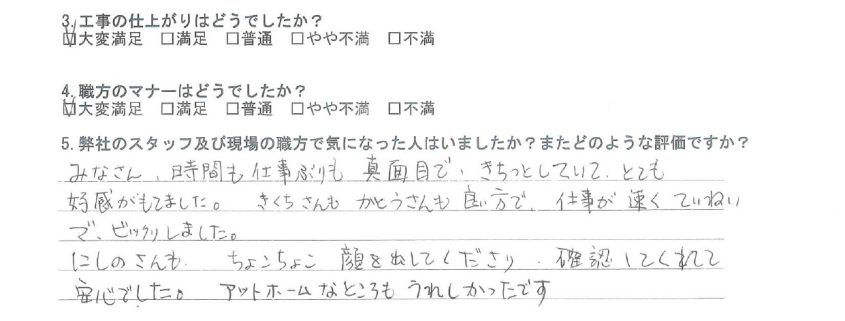 3. 工事の仕上がりはどうでしたか？
☑大変満足 □満足 □普通 □やや不満 □不満
4. 職方のマナーはどうでしたか？
☑大変満足 □満足 □普通 □やや不満 □不満
5. 弊社のスタッフ及び現場の職方で気になった人はいましたか？またどのような評価ですか？
みなさん、時間も仕事ぶりも 真面目で、きちっとしていて、とても
好感がもてました。 きくちさんも かとうさんも 良い方で、仕事が 速く ていねい
で、ビックリしました。
にしのさんも、 ちょこちょこ 顔を出してくださり、確認してくれて
安心でした。 アットホームなところも うれしかったです